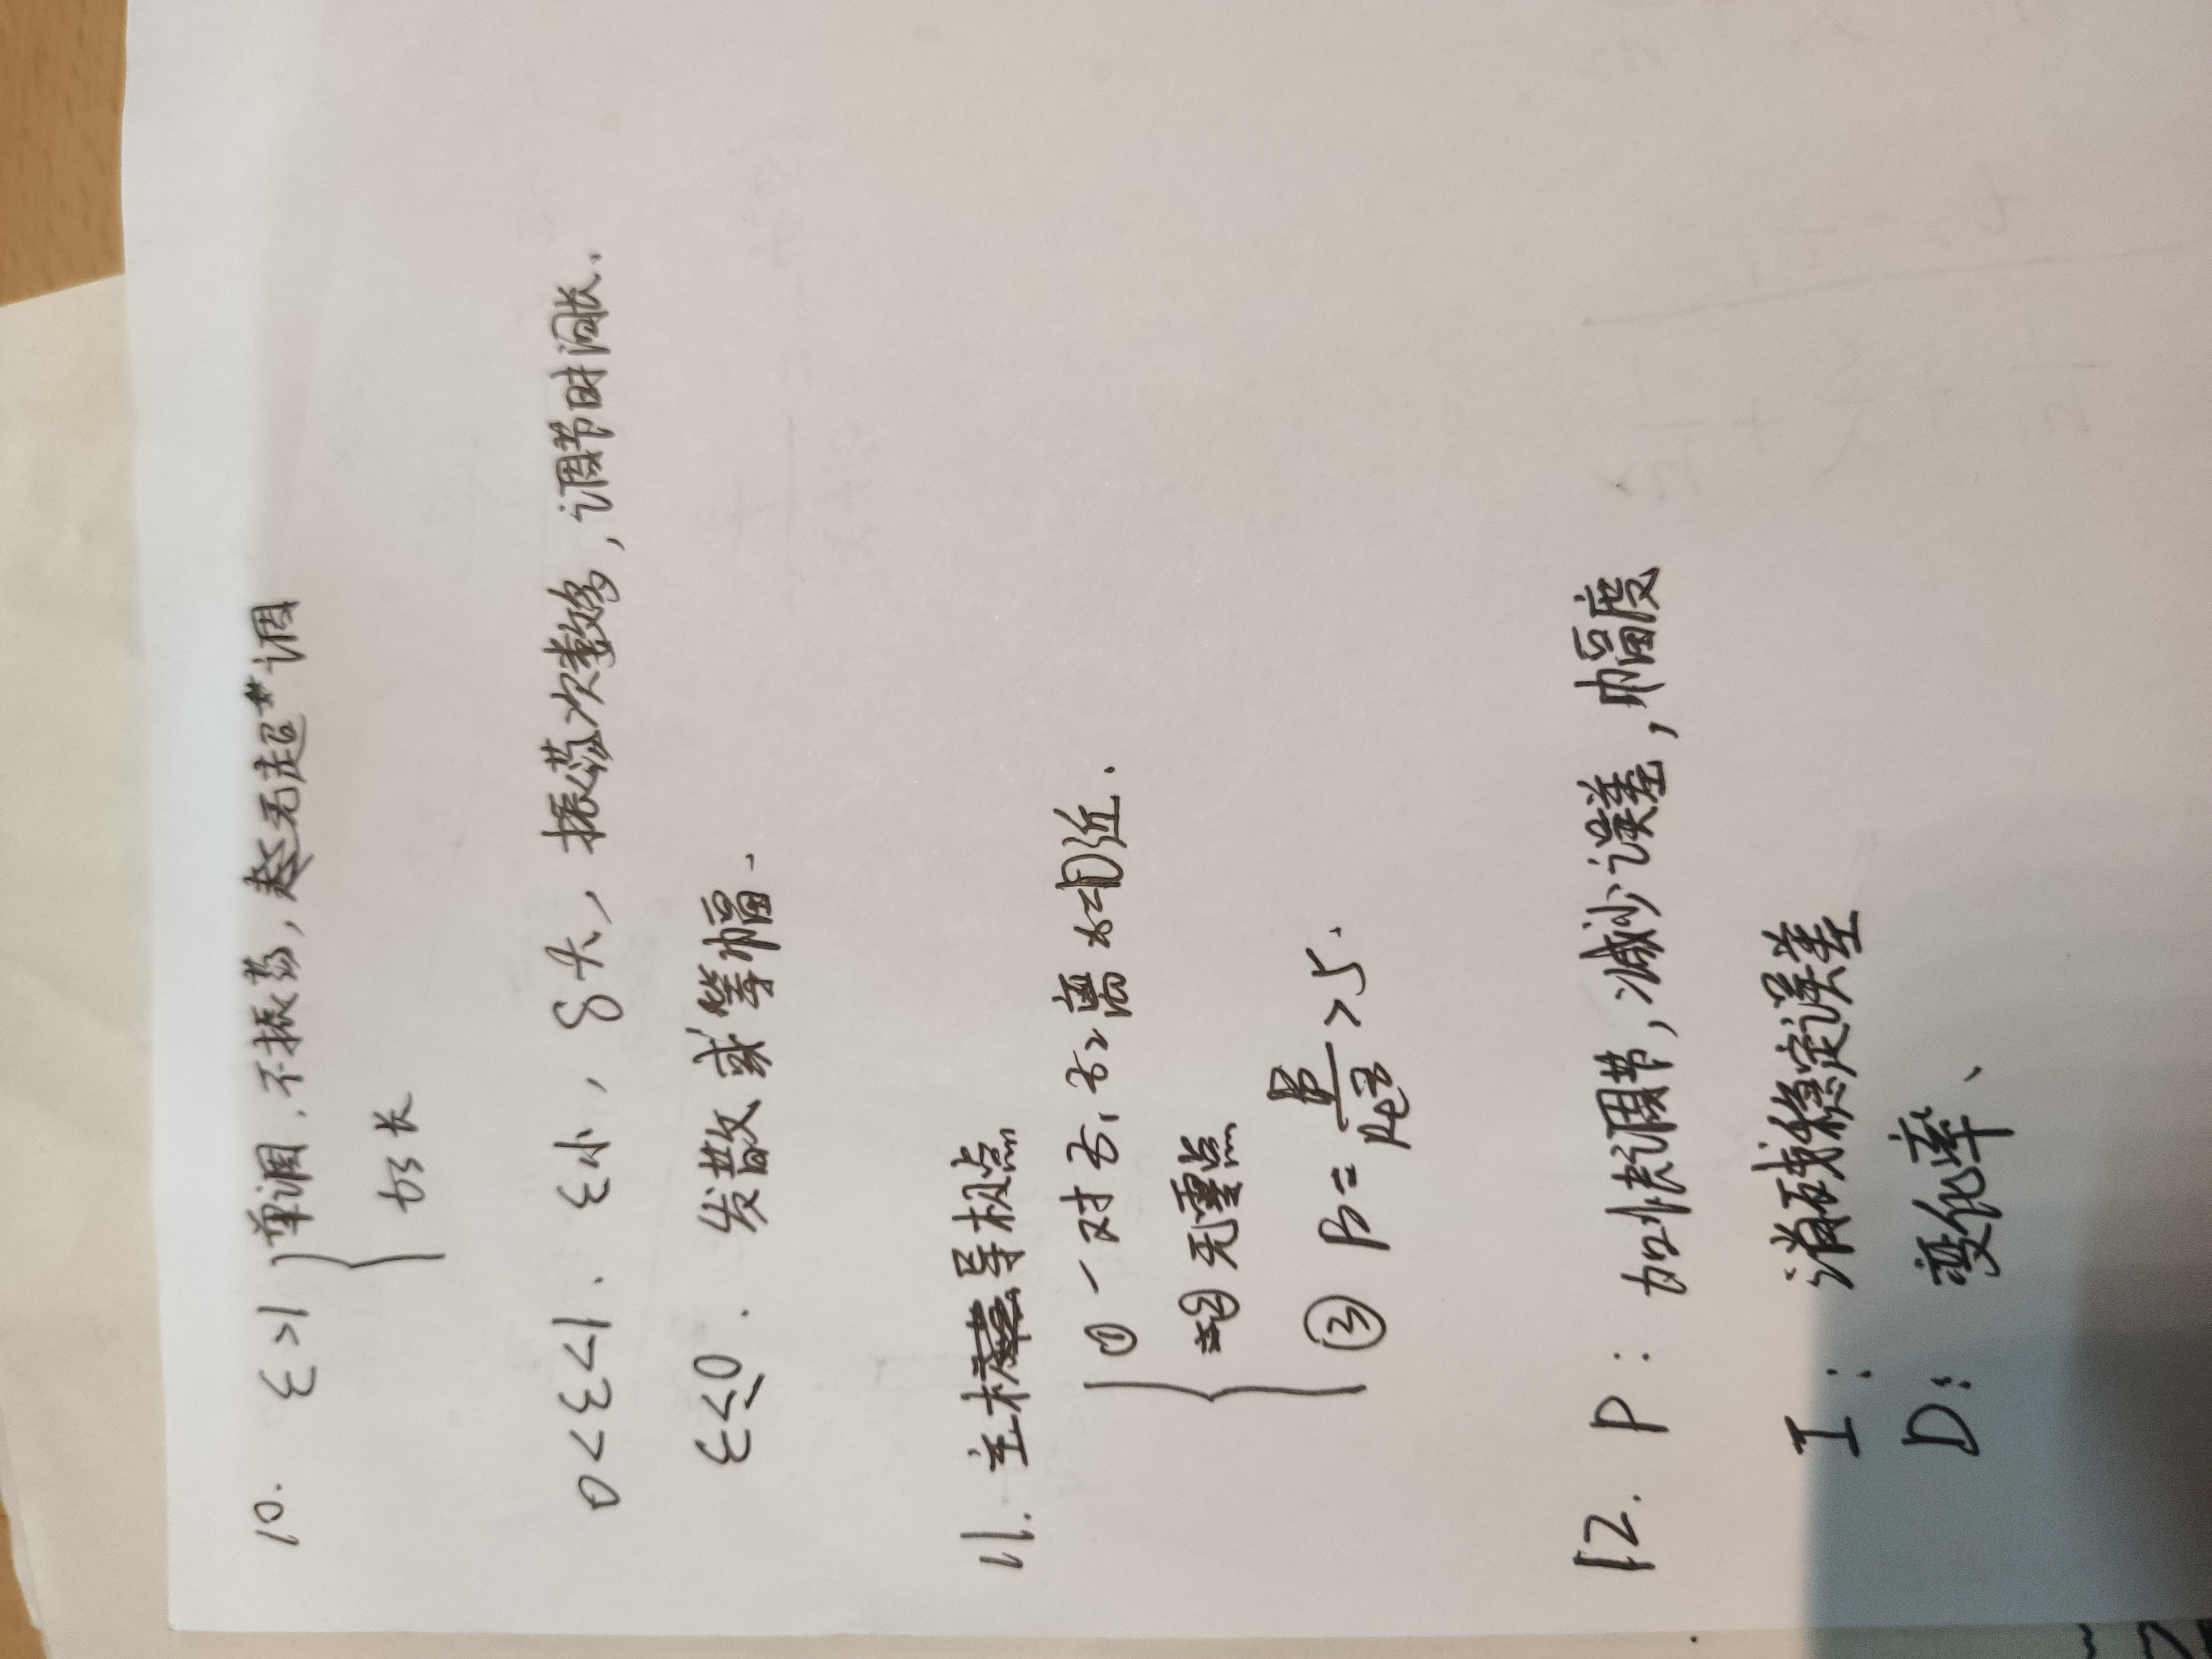 10. ξ>1 { 单调, 不振荡, 无超调
ts长
0<ξ<1. ξ小, δ大, 振荡次数多, 调节时间长.
ξ≤0. 发散或等幅.
11. 主导极点
① 一对 z₁ z₂ 离 近.
② 无零点
③ β= /Re z >5.
12. P: 加快调节, 减少误差, 幅度
I: 消残稳定误差
D: 变化率、